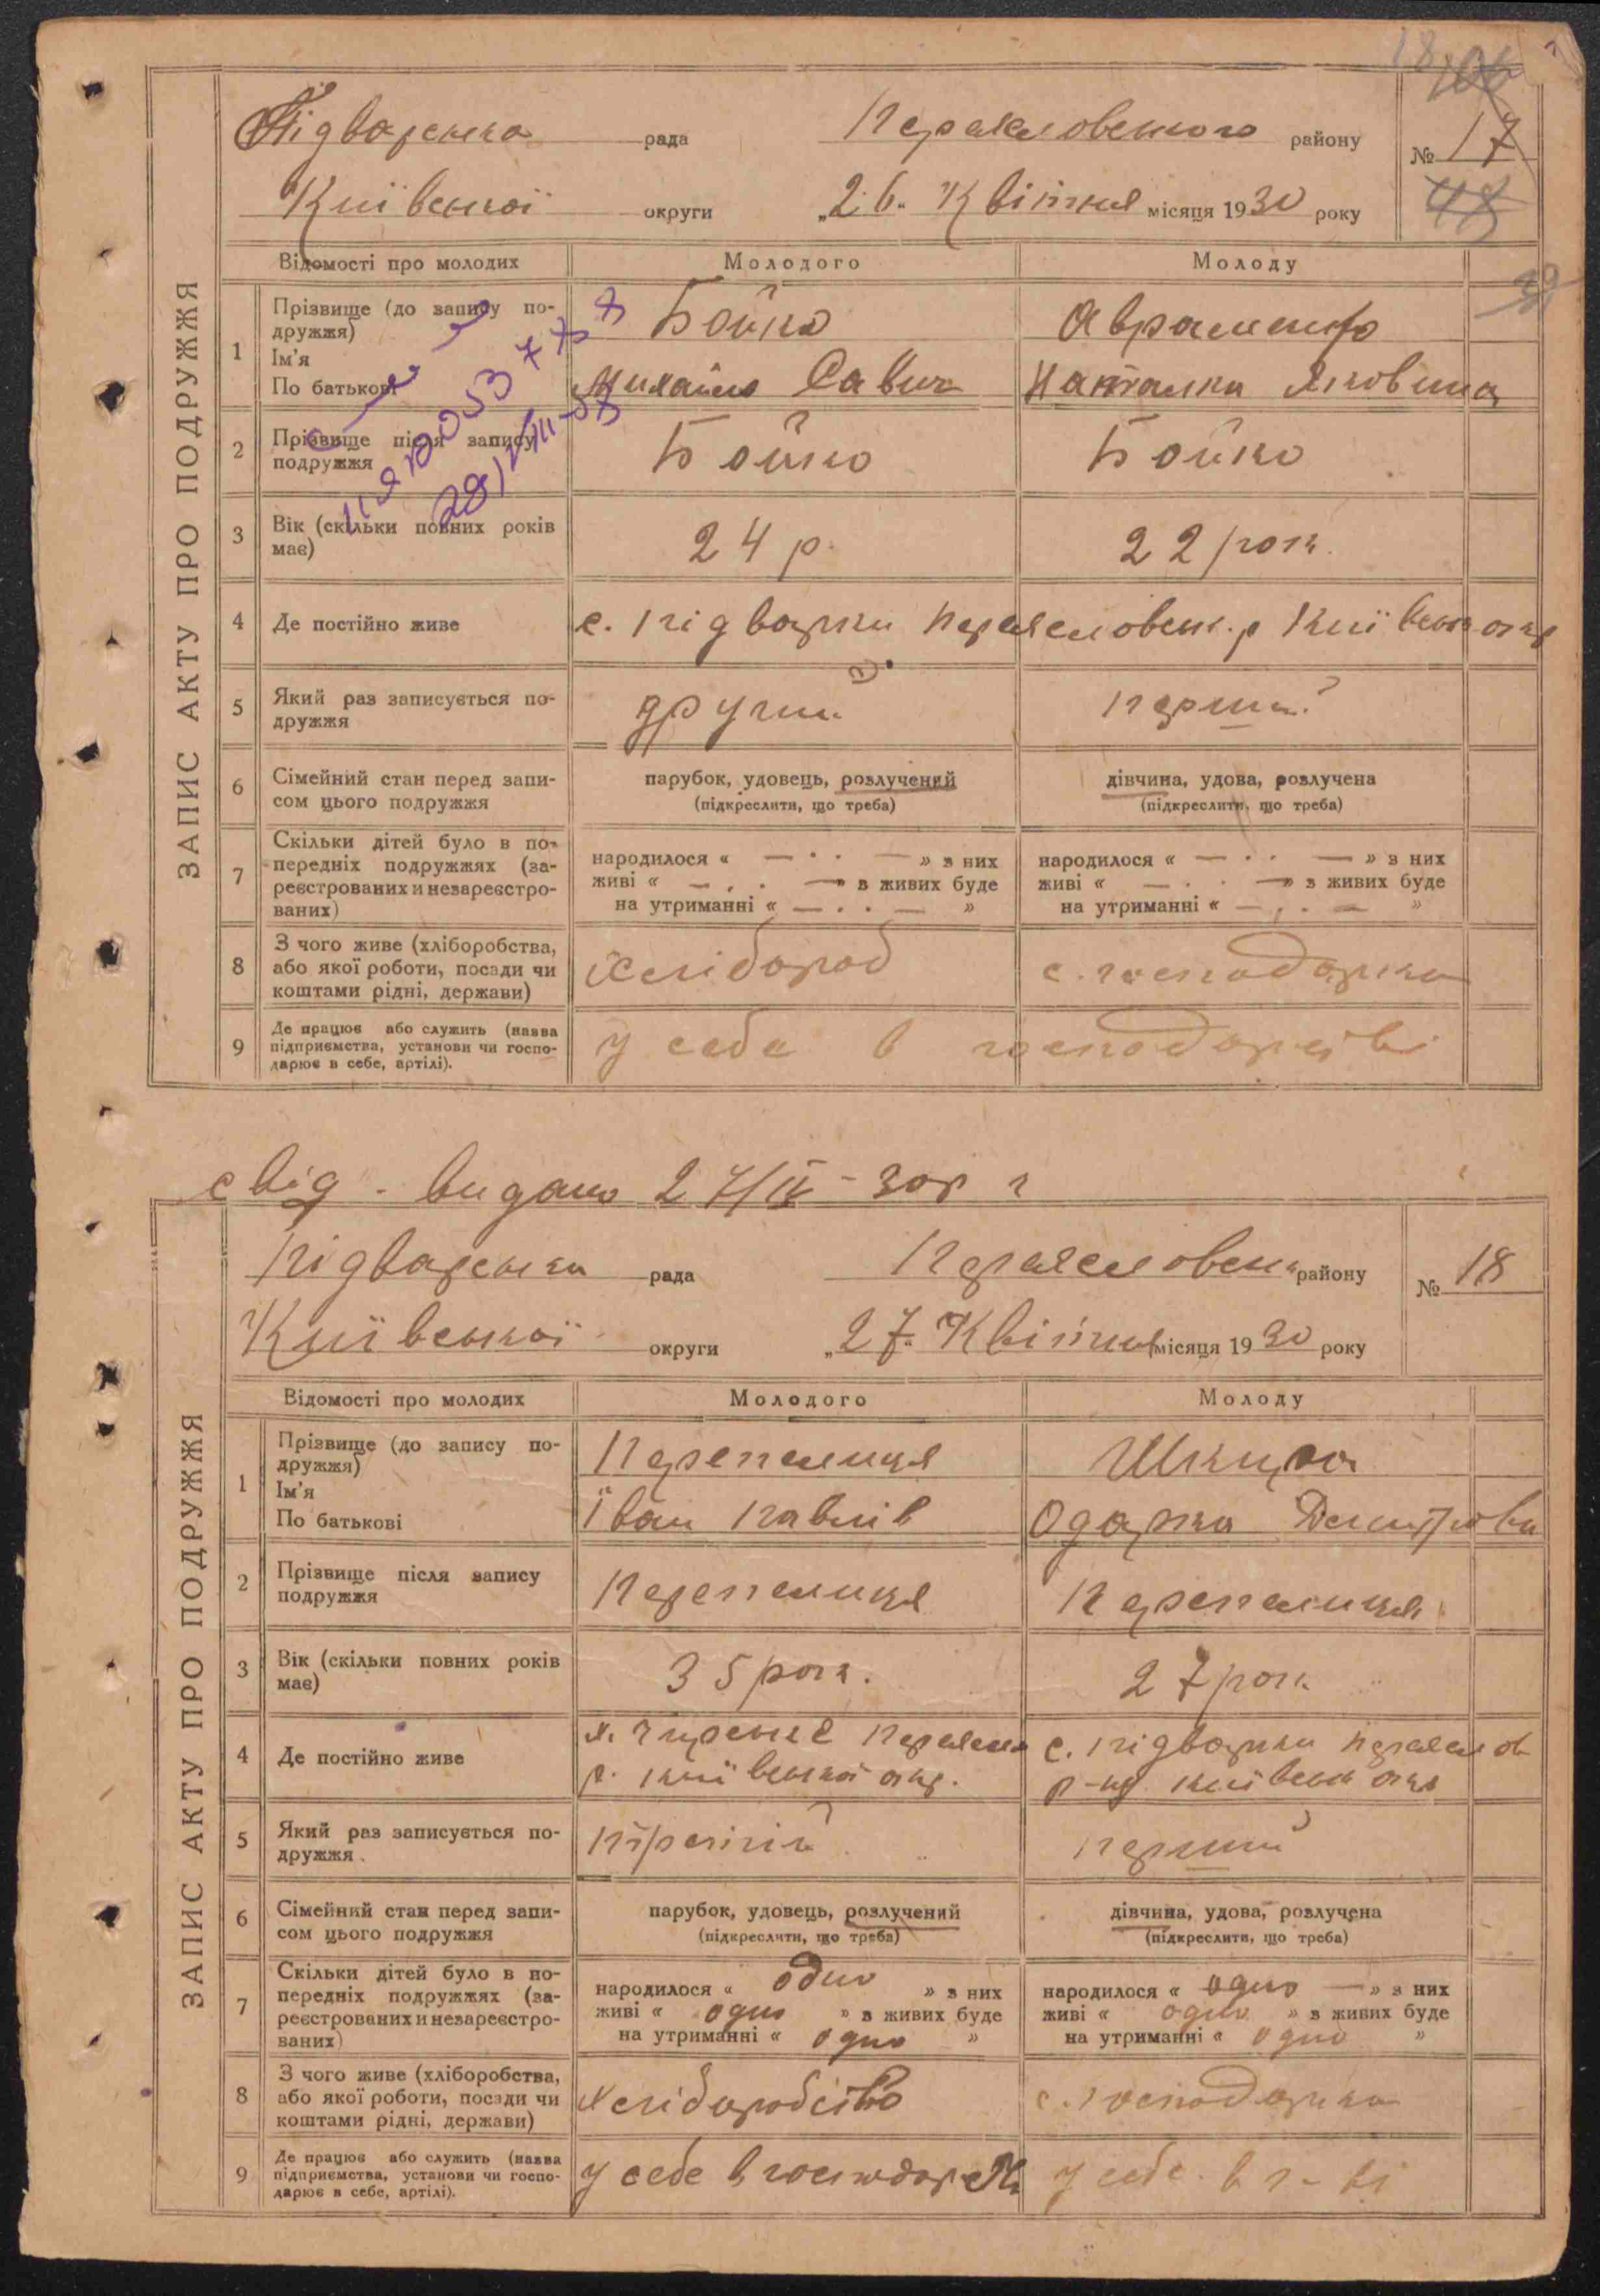 Підварська рада Переясловського району № 17
Київської округи „26" Квітня місяця 1930 року
ЗАПИС АКТУ ПРО ПОДРУЖЖЯ
Відомості про молодих Молодого Молоду
1 Прізвище (до запису подружжя) Бойко Авраменко
Ім'я
По батькові Михайло Савич Наталка Яковина
2 Прізвище після запису подружжя Бойко Бойко
3 Вік (скільки повних років має) 24 р. 22 рок.
4 Де постійно живе с. Підварки Переясловськ. р Київськ окр
5 Який раз записується подружжя другий перший
6 Сімейний стан перед записом цього подружжя парубок, удовець, розлучений дівчина, удова, розлучена
(підкреслити, що треба) (підкреслити, що треба)
7 Скільки дітей було в попередніх подружжях (зареєстрованих и незареєстрованих)
народилося « — » з них народилося « — » з них
живі « — » з живих буде живі « — » з живих буде
на утриманні « — » на утриманні « — »
8 З чого живе (хліборобства, або якої роботи, посади чи коштами рідні, держави) Хлібороб с. господарка
9 Де працює або служить (назва підприємства, установи чи господарює в себе, артілі). у себе в господарстві
свід. видано 27/IV-30р
Підварська рада Переясловськ району № 18
Київської округи „27" Квітня місяця 1930 року
ЗАПИС АКТУ ПРО ПОДРУЖЖЯ
Відомості про молодих Молодого Молоду
1 Прізвище (до запису подружжя) Перепелиця
Ім'я
По батькові Іван Павлів Одарка Дмитрова
2 Прізвище після запису подружжя Перепелиця Перепелиця
3 Вік (скільки повних років має) 35 рок. 27 рок.
4 Де постійно живе Переясл с. Підварки Переяслов
р. Київської окр. р-ну Київськ окр
5 Який раз записується подружжя третій перший
6 Сімейний стан перед записом цього подружжя парубок, удовець, розлучений дівчина, удова, розлучена
(підкреслити, що треба) (підкреслити, що треба)
7 Скільки дітей було в попередніх подружжях (зареєстрованих и незареєстрованих)
народилося « одно » з них народилося « одно — » з них
живі « одно » з живих буде живі « одно » з живих буде
на утриманні « одно » на утриманні « одно »
8 З чого живе (хліборобства, або якої роботи, посади чи коштами рідні, держави) Хліборобство с. господарка
9 Де працює або служить (назва підприємства, установи чи господарює в себе, артілі). у себе в господарстві у себе. в г-ві